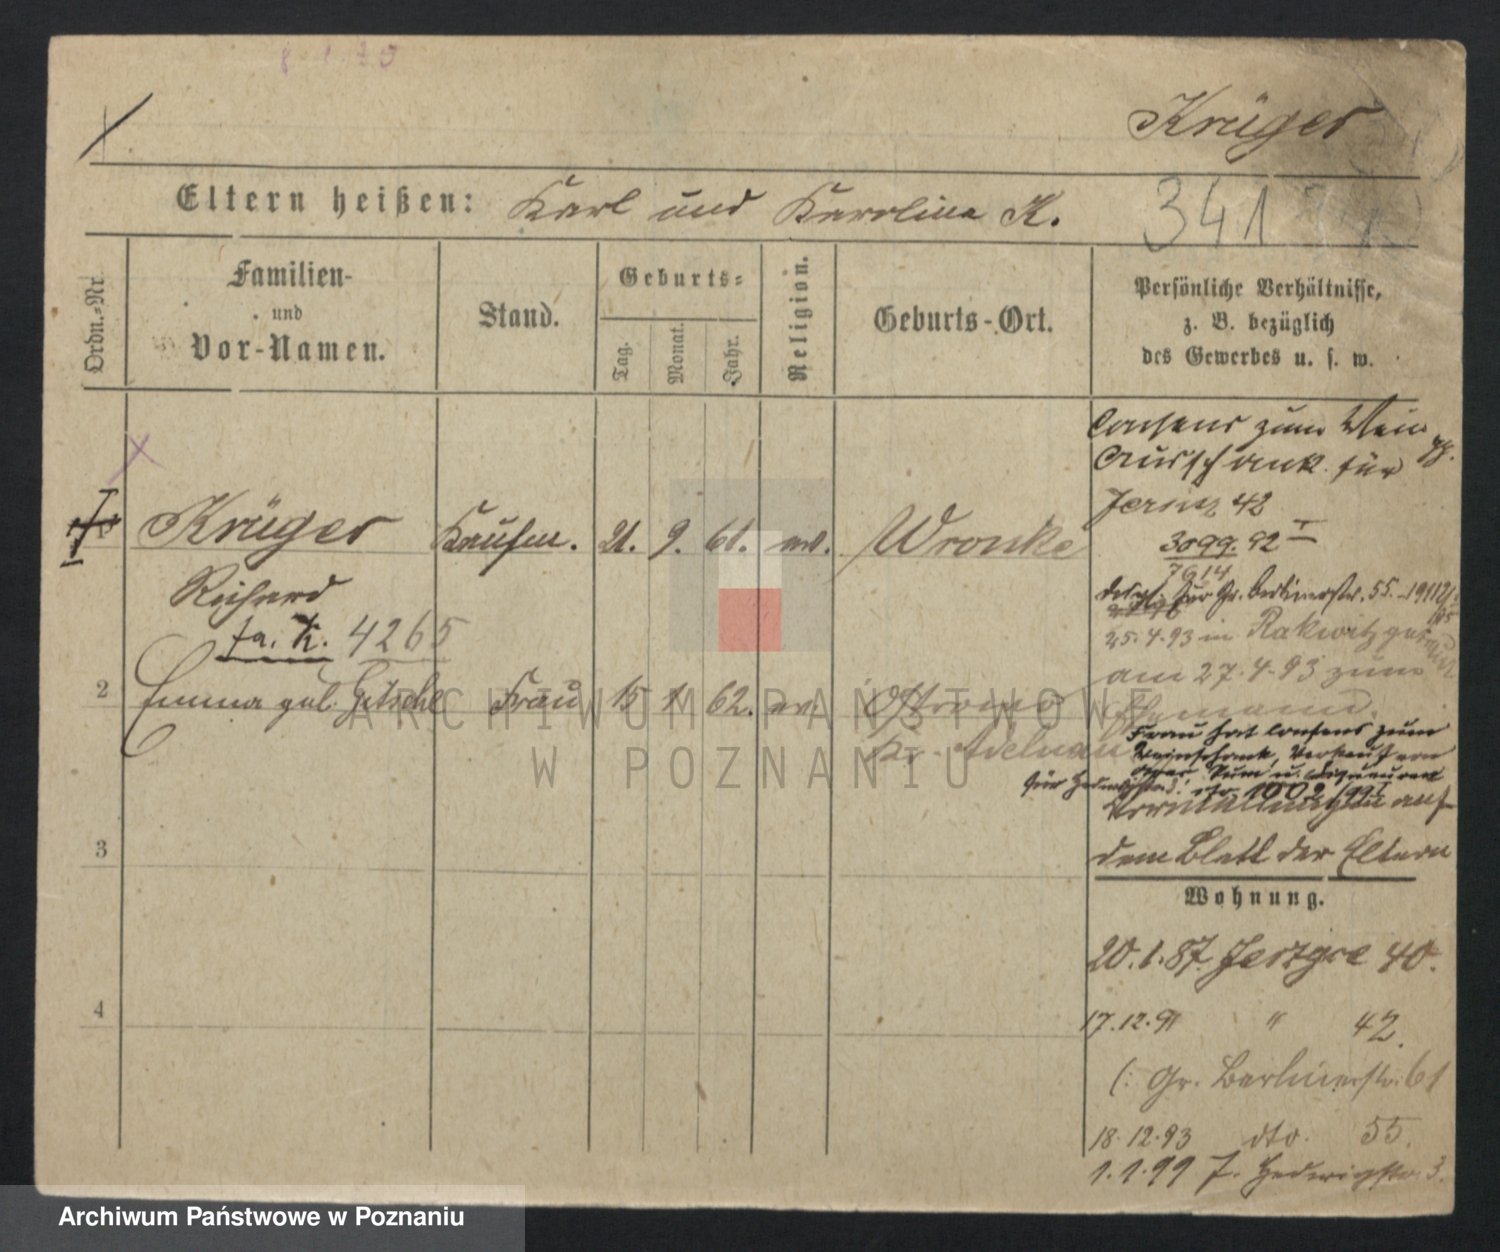 Krüger
Eltern heißen: Karl und Karolina K.
341
Ordn.-Nr.
Familien-
und
Vor-Namen.
Stand.
Geburts-
Tag.
Monat.
Jahr.
Religion.
Geburts-Ort.
Persönliche Verhältnisse,
z. B. bezüglich
des Gewerbes u. s. w.
Consens zum Wein
Ausschank für
Jersitz 42
3099. 92 II
7614
Krüger Kaufm. 21. 9. 61. ev. Wronke
Richard
fa. K. 4265
für Gr. Berlinerstr. 55.
25.4.93 in Rakwitz
am 27.4.93 zum
Ehemann.
2 Emma geb. Frau 15 1 62. ev. Ostrowo
Kr. Adelnau
Frau hat Consens zum
Weinschank, Verkauf von
Rum u.
auf
dem Blatt der Eltern
3
Wohnung.
20.1.87. 40.
4
17.12.91 " 42.
(: Gr. Berlinerstr. 61
18.12.93 dto. 55.
1.1.99 J. Hedwigstr. 3.
ARCHIWUM PAŃSTWOWE
W POZNANIU
Archiwum Państwowe w Poznaniu